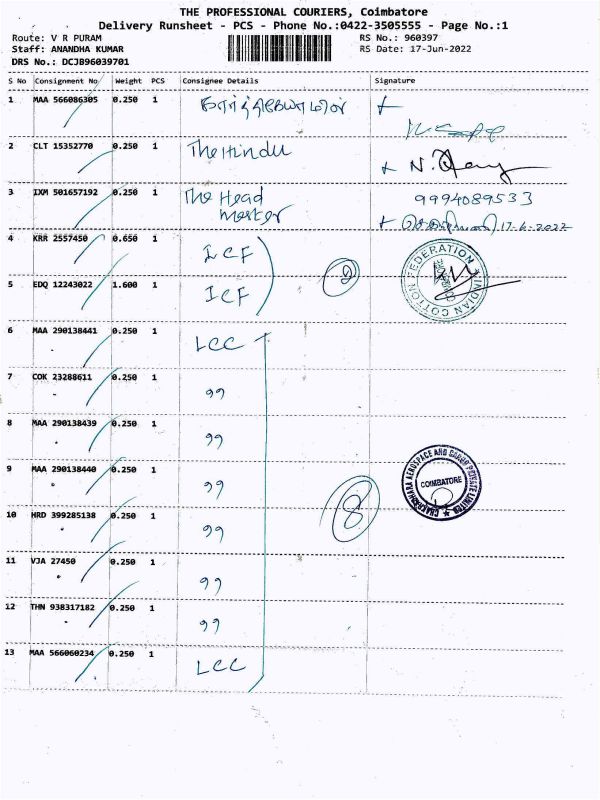 THE PROFESSIONAL COURIERS, Coimbatore
Delivery Runsheet - PCS - Phone No.:0422-3505555 - Page No.:1
Route: V R PURAM RS No.: 960397
Staff: ANANDHA KUMAR RS Date: 17-Jun-2022
DRS No.: DCJB96039701
S No Consignment No Weight PCS Consignee Details Signature
1 MAA 566086305 0.250 1
2 CLT 15352770 0.250 1 The Hindu
3 IXM 501657192 0.250 1 The Head 9994089533
Master 17-6-2022
4 KRR 2557450 0.650 1 ICF
INDIAN COTTON FEDERATION
5 EDQ 12243022 1.600 1 ICF
6 MAA 290138441 0.250 1 LCC
7 COK 23288611 0.250 1 99
8 MAA 290138439 0.250 1 99
9 MAA 290138440 0.250 1 99
COIMBATORE
10 HRD 399285138 0.250 1 99 8
11 VJA 27450 0.250 1 99
12 THN 938317182 0.250 1 99
13 MAA 566060234 0.250 1 LCC